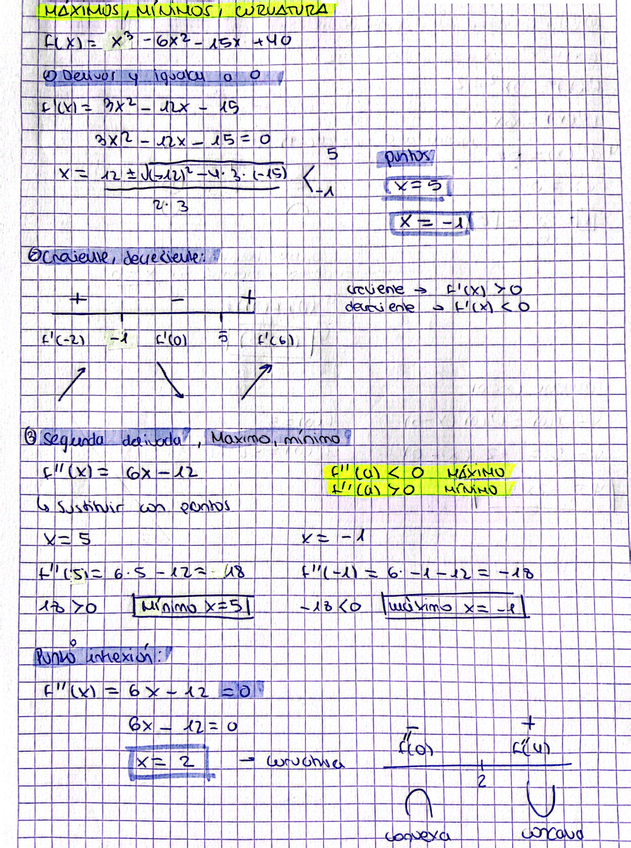 MÁXIMOS, MÍNIMOS, CURVATURA
f(x) = x³ - 6x² - 15x + 40
① Derivar y igualar a 0
f'(x) = 3x² - 12x - 15
3x² - 12x - 15 = 0
x = 12 ± √(-12)² - 4·3·(-15) / 2·3 < 5 -1
puntos
x = 5
x = -1
② Creciente, decreciente:
+ - +
f'(-2) -1 f'(0) 5 f'(6)
creciente → f'(x) > 0
decreciente → f'(x) < 0
③ Segunda derivada, Maximo, mínimo
f''(x) = 6x - 12
f''(a) < 0 MÁXIMO
f''(a) > 0 MÍNIMO
↳ Sustituir con puntos
x = 5
f''(5) = 6·5 - 12 = 18
18 > 0 Mínimo x=5
x = -1
f''(-1) = 6·-1 - 12 = -18
-18 < 0 máximo x = -1
Punto inflexión:
f''(x) = 6x - 12 = 0
6x - 12 = 0
x = 2 → curvatura
- +
f''(0) f''(4)
2
∩ ∪
convexa concava